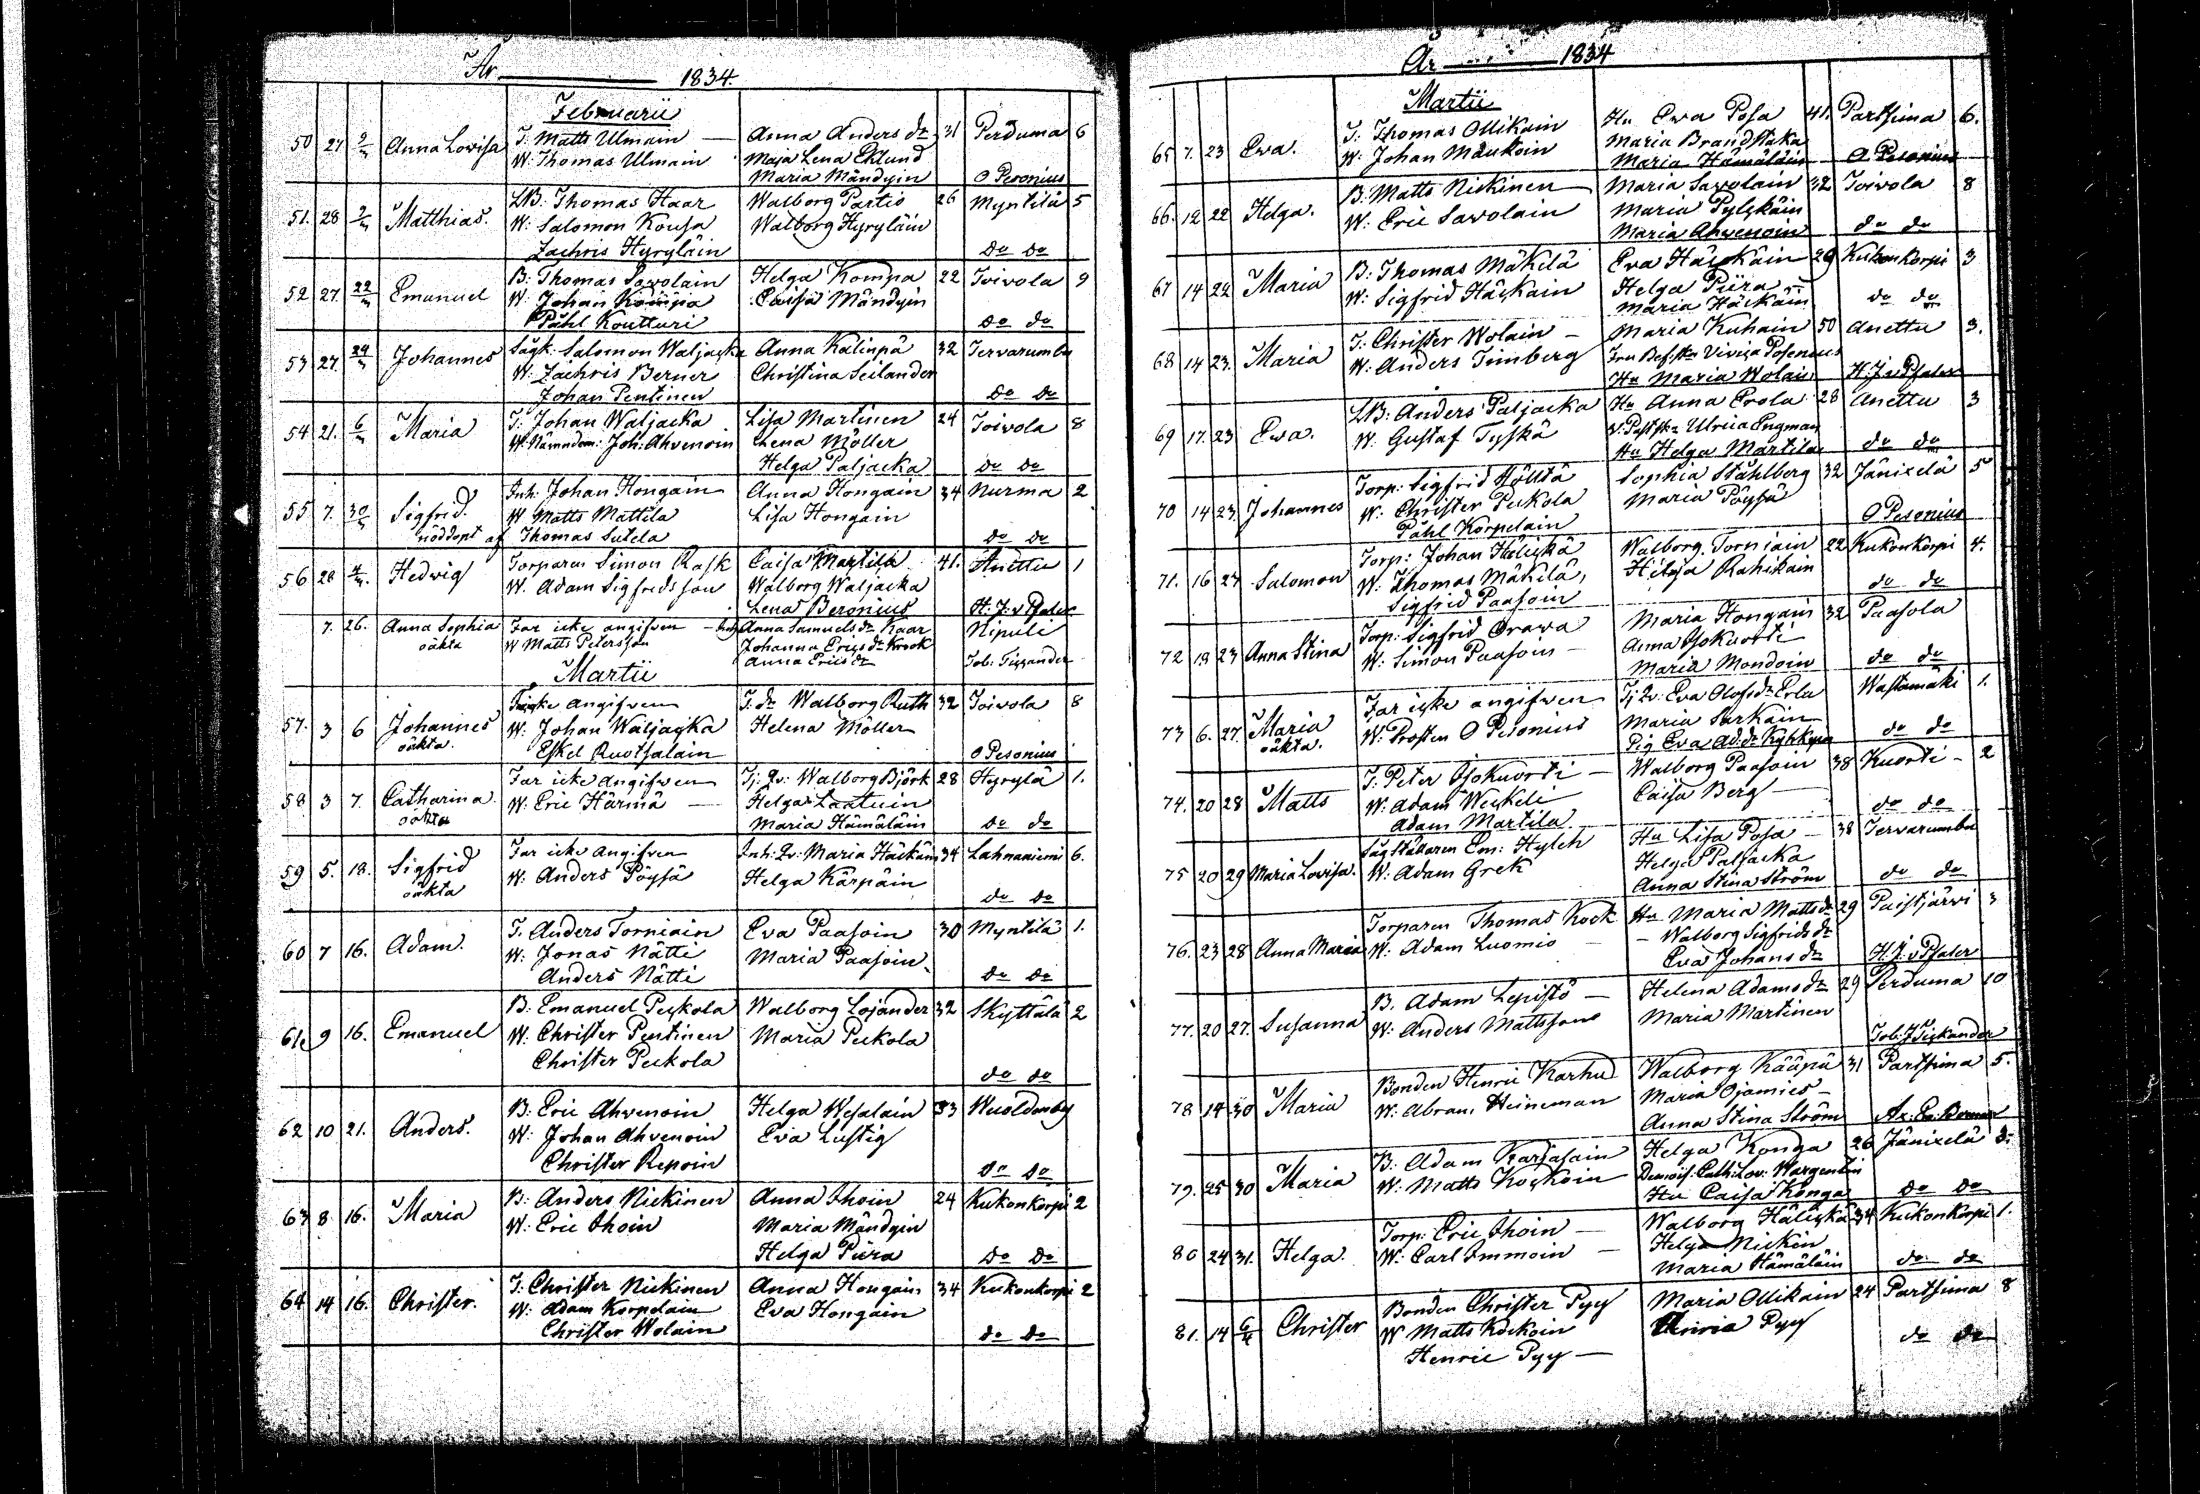 År 1834.
Februarii
50 27 2/3 Anna Lovisa T: Matts Ulmain — Anna Anders dr 31 Perduma 6
W: Thomas Ulmain Maja Lena Eklund
Maria Mändyin O Pesonius
51. 28 2/3 Matthias. LB: Thomas Haar Walborg Partio 26 Myntilä 5
W: Salomon Kousa Walborg Hyryläin
Zachris Hyryläin do do
52 27. Emanuel B: Thomas Savolain Helga Kompa 22 Toivola 9
W: Johan Kämpa Caisa Mändyin
Påhl Koutturi do do
53 27. Johannes Sågk: Salomon Waljacka Anna Kalinpä 32 Tervarumbu
W: Zachris Berner Christina Seilander
Johan Pentinen do do
54 21. Maria T: Johan Waljacka Lisa Martinen 24 Toivola 8
W: Nämndem: Joh: Ahvenoin Lena Möller
Helga Paljacka do do
55 7. Sigfrid. Inh: Johan Hongain Anna Hongain 34 Nurma 2
W Matts Mattila Lisa Hongain
nöddöpt af Thomas Sutela do do
56 28 Hedvig Torparen Simon Rask Caisa Martila 41. Anettu 1
W. Adam Sigfridsson Walborg Waljacka
Lena Beronius H: J: v Pfaler
7. 26. Anna Sophia Far icke angifven Anna Samuels dr Kaar Nipuli
oäkta W Matts Petersson Johanna Erics dr Krook
Anna Erics dr Tob: Tizzander
Martii
57. 3 6 Johannes Far icke angifven T. dr Walborg Ruth 32 Toivola 8
oäkta. W. Johan Waljacka Helena Möller
Eskel Ruotsalain O Pesonius
58 3 7. Catharina Far icke angifven Tj: Qv: Walborg Björk 28 Hyrylä 1.
oäkta W: Eric Härmä — Helga Laatuin
Maria Hämäläin do do
59 5. 18. Sigfrid Far icke angifven Inh: Qv: Maria Häckäin 34 Lahnaniemi 6.
oäkta W: Anders Pöysä Helga Kärpäin
do do
60 7 16. Adam. T. Anders Torniain Eva Paasoin 30 Myntilä 1.
W: Jonas Nätti Maria Paasoin
Anders Nätti do do
61. 9 16. Emanuel B: Emanuel Peckola Walborg Lojander 32 Skyttälä 2
W: Christer Pentinen Maria Peckola
Christer Peckola do do
62 10 21. Anders. B: Eric Ahvenoin Helga Wesalain 33 Wuoldenby
W: Johan Ahvenoin Eva Lustig
Christer Repoin do do
63 8 16. Maria B: Anders Nickinen Anna Ihoin 24 Kukonkorpi 2
W: Eric Ihoin Maria Mändyin
Helga Piira do do
64 14 16. Christer. T: Christer Nickinen Anna Hongain 34 Kukonkorpi 2
W: Adam Korpelain Eva Hongain
Christer Wolain do do
År 1834
Martii
65 7. 23 Eva. T: Thomas Ollikain Hu Eva Posa 41. Partsima 6.
W: Johan Mäukoin Maria Brandstaka
Maria Hämäläin O Pesonius
66. 12 22 Helga. B: Matts Nickinen Maria Savolain 32 Toivola 8
W: Eric Savolain Maria Pylskäin
Maria Ahvenoin do do
67 14 22 Maria B: Thomas Mäkelä Eva Häckäin 29 Kukonkorpi 3
W: Sigfrid Häckäin Helga Piira
Maria Häckäin do do
68 14 23. Maria T: Christer Wolain — Maria Kuhain 50 Anettu 3.
W: Anders Timberg Vivica Posenius
Hu Maria Wolain H: J: v Pfaler
69 17. 23 Eva. LB: Anders Paljacka Hu Anna Erola 28 Anettu 3
W. Gustaf Tyskä Ulrica Engman
Hu Helga Martila do do
70 14 23. Johannes Torp: Sigfrid Hölttä Sophia Ståhlberg 32 Jänixelä 5
W: Christer Peckola Maria Pöysä
Påhl Korpelain O Pesonius
71. 16 24 Salomon Torp: Johan Häliskä Walborg Torniain 22 Kukonkorpi 4.
W: Thomas Mäkelä, Helga Rahikain
Sigfrid Paasoin do do
72 18 23 Anna Stina Torp: Sigfrid Orawa Maria Hongain 32 Paasola
W: Simon Paasoin — Anna Isokuorti
Maria Mondoin do do
73 6. 27. Maria Far icke angifven Tj Qv: Eva Olofsdr Erla Wastamäki 1.
oäkta. W: Prosten O Pesonius Maria Surkain
Pig Eva Ad:dr Kyhkyin do do
74. 20 28 Matts T: Peter Isokuorti — Walborg Paasoin 38 Kuorti — 2
W: Adam Weckeli Caisa Berg —
Adam Martila do do
75 20 29 Maria Lovisa. Sågställaren Em: Hylch Hu Lisa Posa — 38 Tervarumbu
W: Adam Grek Helga Paljacka
Anna Stina Ström do do
76. 23 28 Anna Maria Torparen Thomas Kock Hu Maria Matts dr 29 Paistjärvi 3
W: Adam Luomio — Walborg Sigfrids dr
Eva Johans dr H. J. v Pfaler
77. 20 27. Susanna B. Adam Lepistö — Helena Adams dr 29 Perduma 10
W: Anders Mattsson Maria Martinen
Tob: J Tiskander
78 14 30 Maria Bonden Henric Karhu Walborg Kääpä 31 Partsima 5.
W: Abram Heineman Maria Ojamies —
Anna Stina Ström
79. 25 30 Maria B: Adam Karjasain Helga Konga 26 Jänixelä 3.
W: Matts Kockoin Demois: Cath: Lov: Wargentin
Hu Caisa Konga do do
80 24 31. Helga. Torp: Eric Ihoin — Walborg Häliskä 34 Kukonkorpi 1.
W: Carl Immoin — Helga Nickin
Maria Hämäläin do do
81. 14 6/4 Christer Bonden Christer Pyy Maria Ollikain 24 Partsima 8
W Matts Kockoin Pyy
Henric Pyy — do do